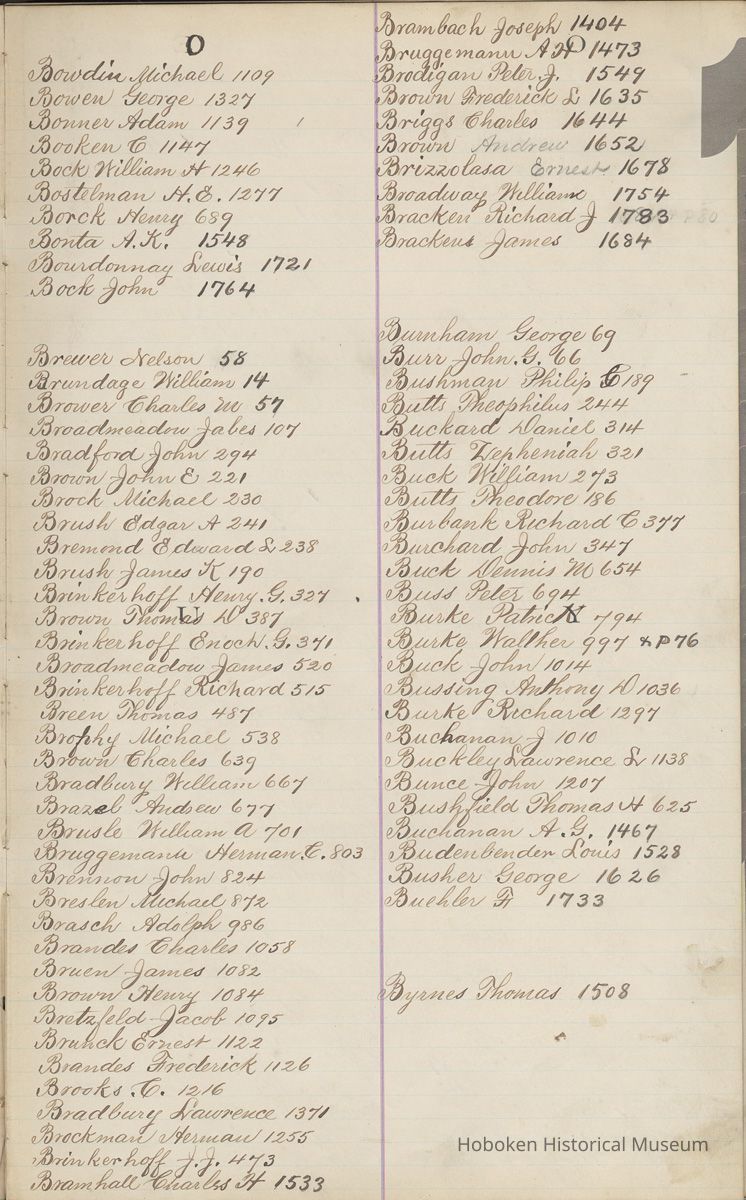 O
Bowdin Michael 1109
Bowen George 1327
Bonner Adam 1139
Booken C 1147
Bock William H 1246
Bostelman H.E. 1277
Borck Henry 689
Bonta A.K. 1548
Bourdonnay Lewis 1721
Bock John 1764
Brewer Nelson 58
Brundage William 14
Brower Charles M 57
Broadmeadow Jabes 107
Bradford John 294
Brown John E 221
Brock Michael 230
Brush Edgar A 241
Bremond Edward L 238
Brush James K 190
Brinkerhoff Henry.G. 327
Brown Thomas D 387
Brinkerhoff Enoch.G. 371
Broadmeadow James 520
Brinkerhoff Richard 515
Breen Thomas 487
Brophy Michael 538
Brown Charles 639
Bradbury William 667
Brazel Andrew 677
Brusle William A 701
Bruggemann Herman.C. 803
Brennon John 824
Breslen Michael 872
Brasch Adolph 986
Brandes Charles 1058
Bruen James 1082
Brown Henry 1084
Bretzfeld Jacob 1095
Brunck Ernest 1122
Brandes Frederick 1126
Brooks .C. 1216
Bradbury Lawrence 1371
Brockman Herman 1255
Brinkerhoff J.J. 473
Bramhall Charles H 1533
Brambach Joseph 1404
Bruggemann A H 1473
Brodigan Peter J. 1549
Brown Frederick L 1635
Briggs Charles 1644
Brown Andrew 1652
Brizzolasa Ernest 1678
Broadway William 1754
Bracken Richard J 1783
Brackens James 1684
U
Burnham George 69
Burr John.G. 66
Bushman Philip G 189
Butts Theophilus 244
Buckard Daniel 314
Butts Zepheniah 321
Buck William 273
Butts Theodore 186
Burbank Richard C 377
Burchard John 347
Buck Dennis M 654
Buss Peter 694
Burke Patrick 794
Burke Walther 997 & P 76
Buck John 1014
Bussing Anthony D 1036
Burke Richard 1297
Buchanan J 1010
Buckley Lawrence L 1138
Bunce John 1207
Bushfield Thomas H 625
Buchanan A.G. 1467
Budenbender Louis 1528
Busher George 1626
Buehler F 1733
Byrnes Thomas 1508
Hoboken Historical Museum